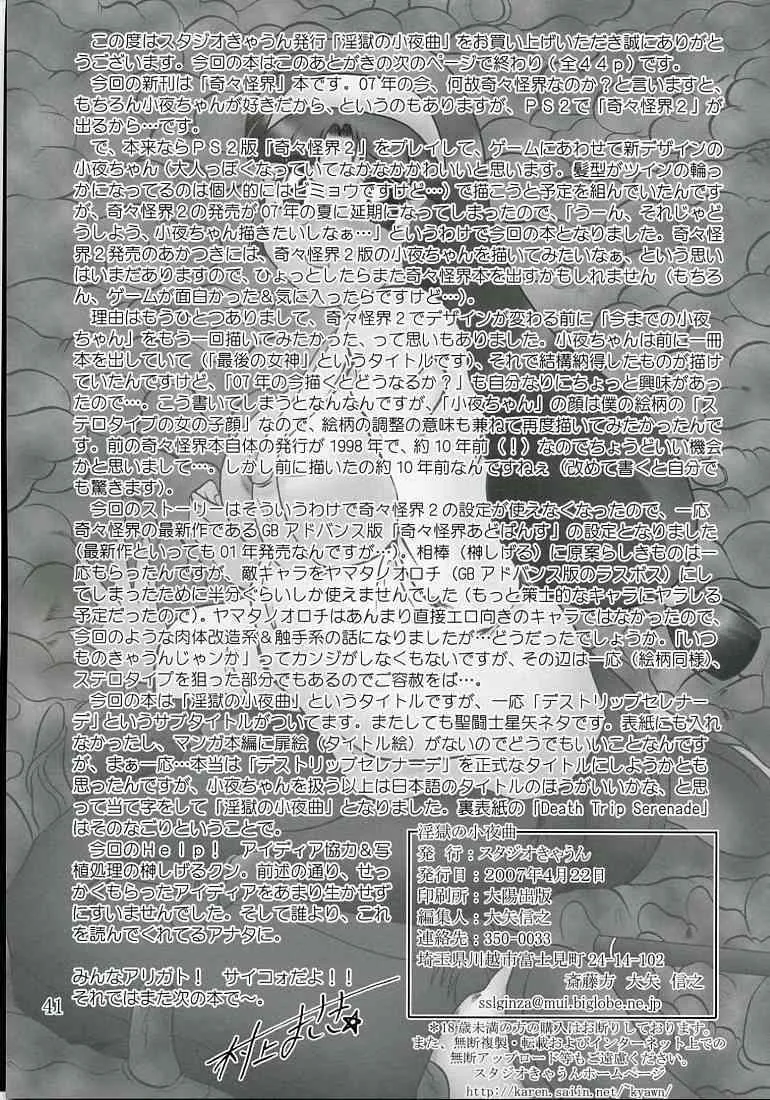 この度はスタジオきゃうん発行「淫獄の小夜曲」をお買い上げいただき誠にありがと
うございます。今回の本はこのあとがきの次のページで終わり（全４４ｐ）です。
今回の新刊は「奇々怪界」本です。０７年の今、何故奇々怪界なのか？と言いますと、
もちろん小夜ちゃんが好きだから、というのもありますが、ＰＳ２で「奇々怪界２」が
出るから…です。
で、本来ならＰＳ２版「奇々怪界２」をプレイして、ゲームにあわせて新デザインの
小夜ちゃん（大人っぽくなっていてなかなかかわいいと思います。髪型がツインの輪っ
かになってるのは個人的にはビミョウですけど…）で描こうと予定を組んでいたんです
が、奇々怪界２の発売が０７年の夏に延期になってしまったので、「うーん、それじゃど
うしよう、小夜ちゃん描きたいしなぁ…」というわけで今回の本となりました。奇々怪
界２発売のあかつきには、奇々怪界２版の小夜ちゃんを描いてみたいなぁ、という思い
はいまだありますので、ひょっとしたらまた奇々怪界本を出すかもしれません（もちろ
ん、ゲームが面白かった＆気に入ったらですけど…）。
理由はもうひとつありまして、奇々怪界２でデザインが変わる前に「今までの小夜
ちゃん」をもう一回描いてみたかった、って思いもありました。小夜ちゃんは前に一冊
本を出していて（「最後の女神」というタイトルです）、それで結構納得したものが描け
ていたんですけど、「０７年の今描くとどうなるか？」も自分なりにちょっと興味があっ
たので…。こう書いてしまうとなんなんですが、「小夜ちゃん」の顔は僕の絵柄の「ス
テロタイプの女の子顔」なので、絵柄の調整の意味も兼ねて再度描いてみたかったんで
す。前の奇々怪界本自体の発行が1998年で、約10年前（！）なのでちょうどいい機会
かと思いまして…。しかし前に描いたの約10年前なんですねぇ（改めて書くと自分で
も驚きます）。
今回のストーリーはそういうわけで奇々怪界２の設定が使えなくなったので、一応
奇々怪界の最新作であるGBアドバンス版「奇々怪界あどばんす」の設定となりました
（最新作といっても01年発売なんですが…）。相棒（榊しげる）に原案らしきものは一
応もらったんですが、敵キャラをヤマタノオロチ（GBアドバンス版のラスボス）にし
てしまったために半分ぐらいしか使えませんでした（もっと策士的なキャラにヤラレる
予定だったので）。ヤマタノオロチはあんまり直接エロ向きのキャラではなかったので、
今回のような肉体改造系＆触手系の話になりましたが…どうだったでしょうか。「いつ
ものきゃうんじゃンか」ってカンジがしなくもないですが、その辺は一応（絵柄同様）、
ステロタイプを狙った部分でもあるのでご容赦をば…。
今回の本は「淫獄の小夜曲」というタイトルですが、一応「デストリップセレナー
デ」というサブタイトルがついてます。またしても聖闘士星矢ネタです。表紙にも入れ
なかったし、マンガ本編に扉絵（タイトル絵）がないのでどうでもいいことなんです
が、まぁ一応…本当は「デストリップセレナーデ」を正式なタイトルにしようかとも
思ったんですが、小夜ちゃんを扱う以上は日本語のタイトルのほうがいいかな、と思
って当て字をして「淫獄の小夜曲」となりました。裏表紙の「Death Trip Serenade」
はそのなごりということで。
今回のＨｅｌｐ！　アイディア協力＆写
植処理の榊しげるクン。前述の通り、せっ
かくもらったアイディアをあまり生かせず
にすいませんでした。そして誰より、これ
を読んでくれてるアナタに。
みんなアリガト！　サイコォだよ！！
それではまた次の本で〜。
村上まさき
41
淫獄の小夜曲
発　行：スタジオきゃうん
発行日：2007年4月22日
印刷所：大陽出版
編集人：大矢信之
連絡先：350-0033
埼玉県川越市富士見町24-14-102
斎藤方　大矢　信之
sslginza@mui.biglobe.ne.jp
＊18歳未満の方の購入はお断りしております。
また、無断複製・転載およびインターネット上での
無断アップロード等もご遠慮ください。
スタジオきゃうんホームページ
http://karen.saiin.net/~kyawn/